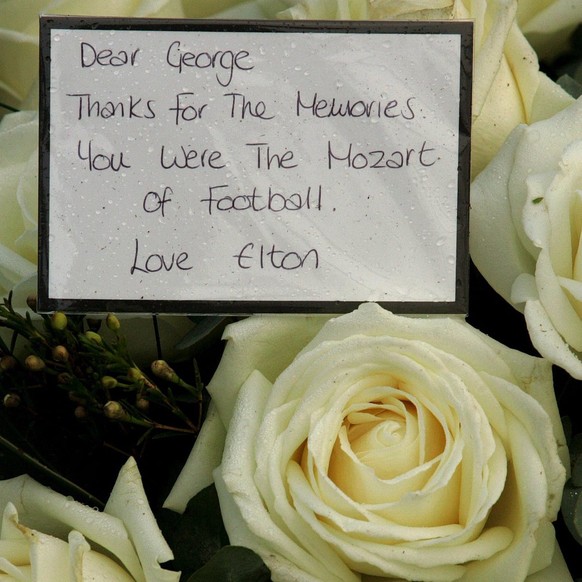 Dear George
Thanks for The Memories.
You Were The Mozart
of Football.
Love Elton